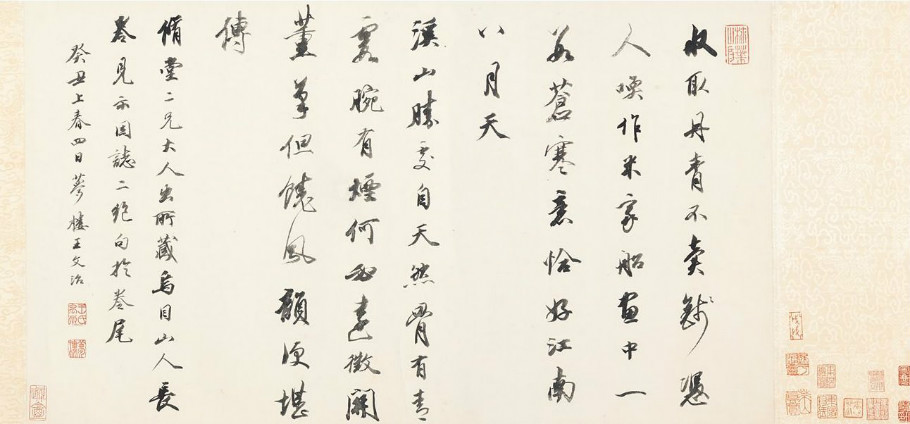 收取丹青不賣錢憑
人喚作米家船畫中一
段蒼寒意恰好江南
八月天
溪山勝處自天然胷有青
霞腕有煙何必遠徵關
董筆但饒風韻便堪
傳
脩堂二兄大人出所藏烏目山人長
卷見示因誌二絕句於卷尾
癸丑上春四日夢樓王文治